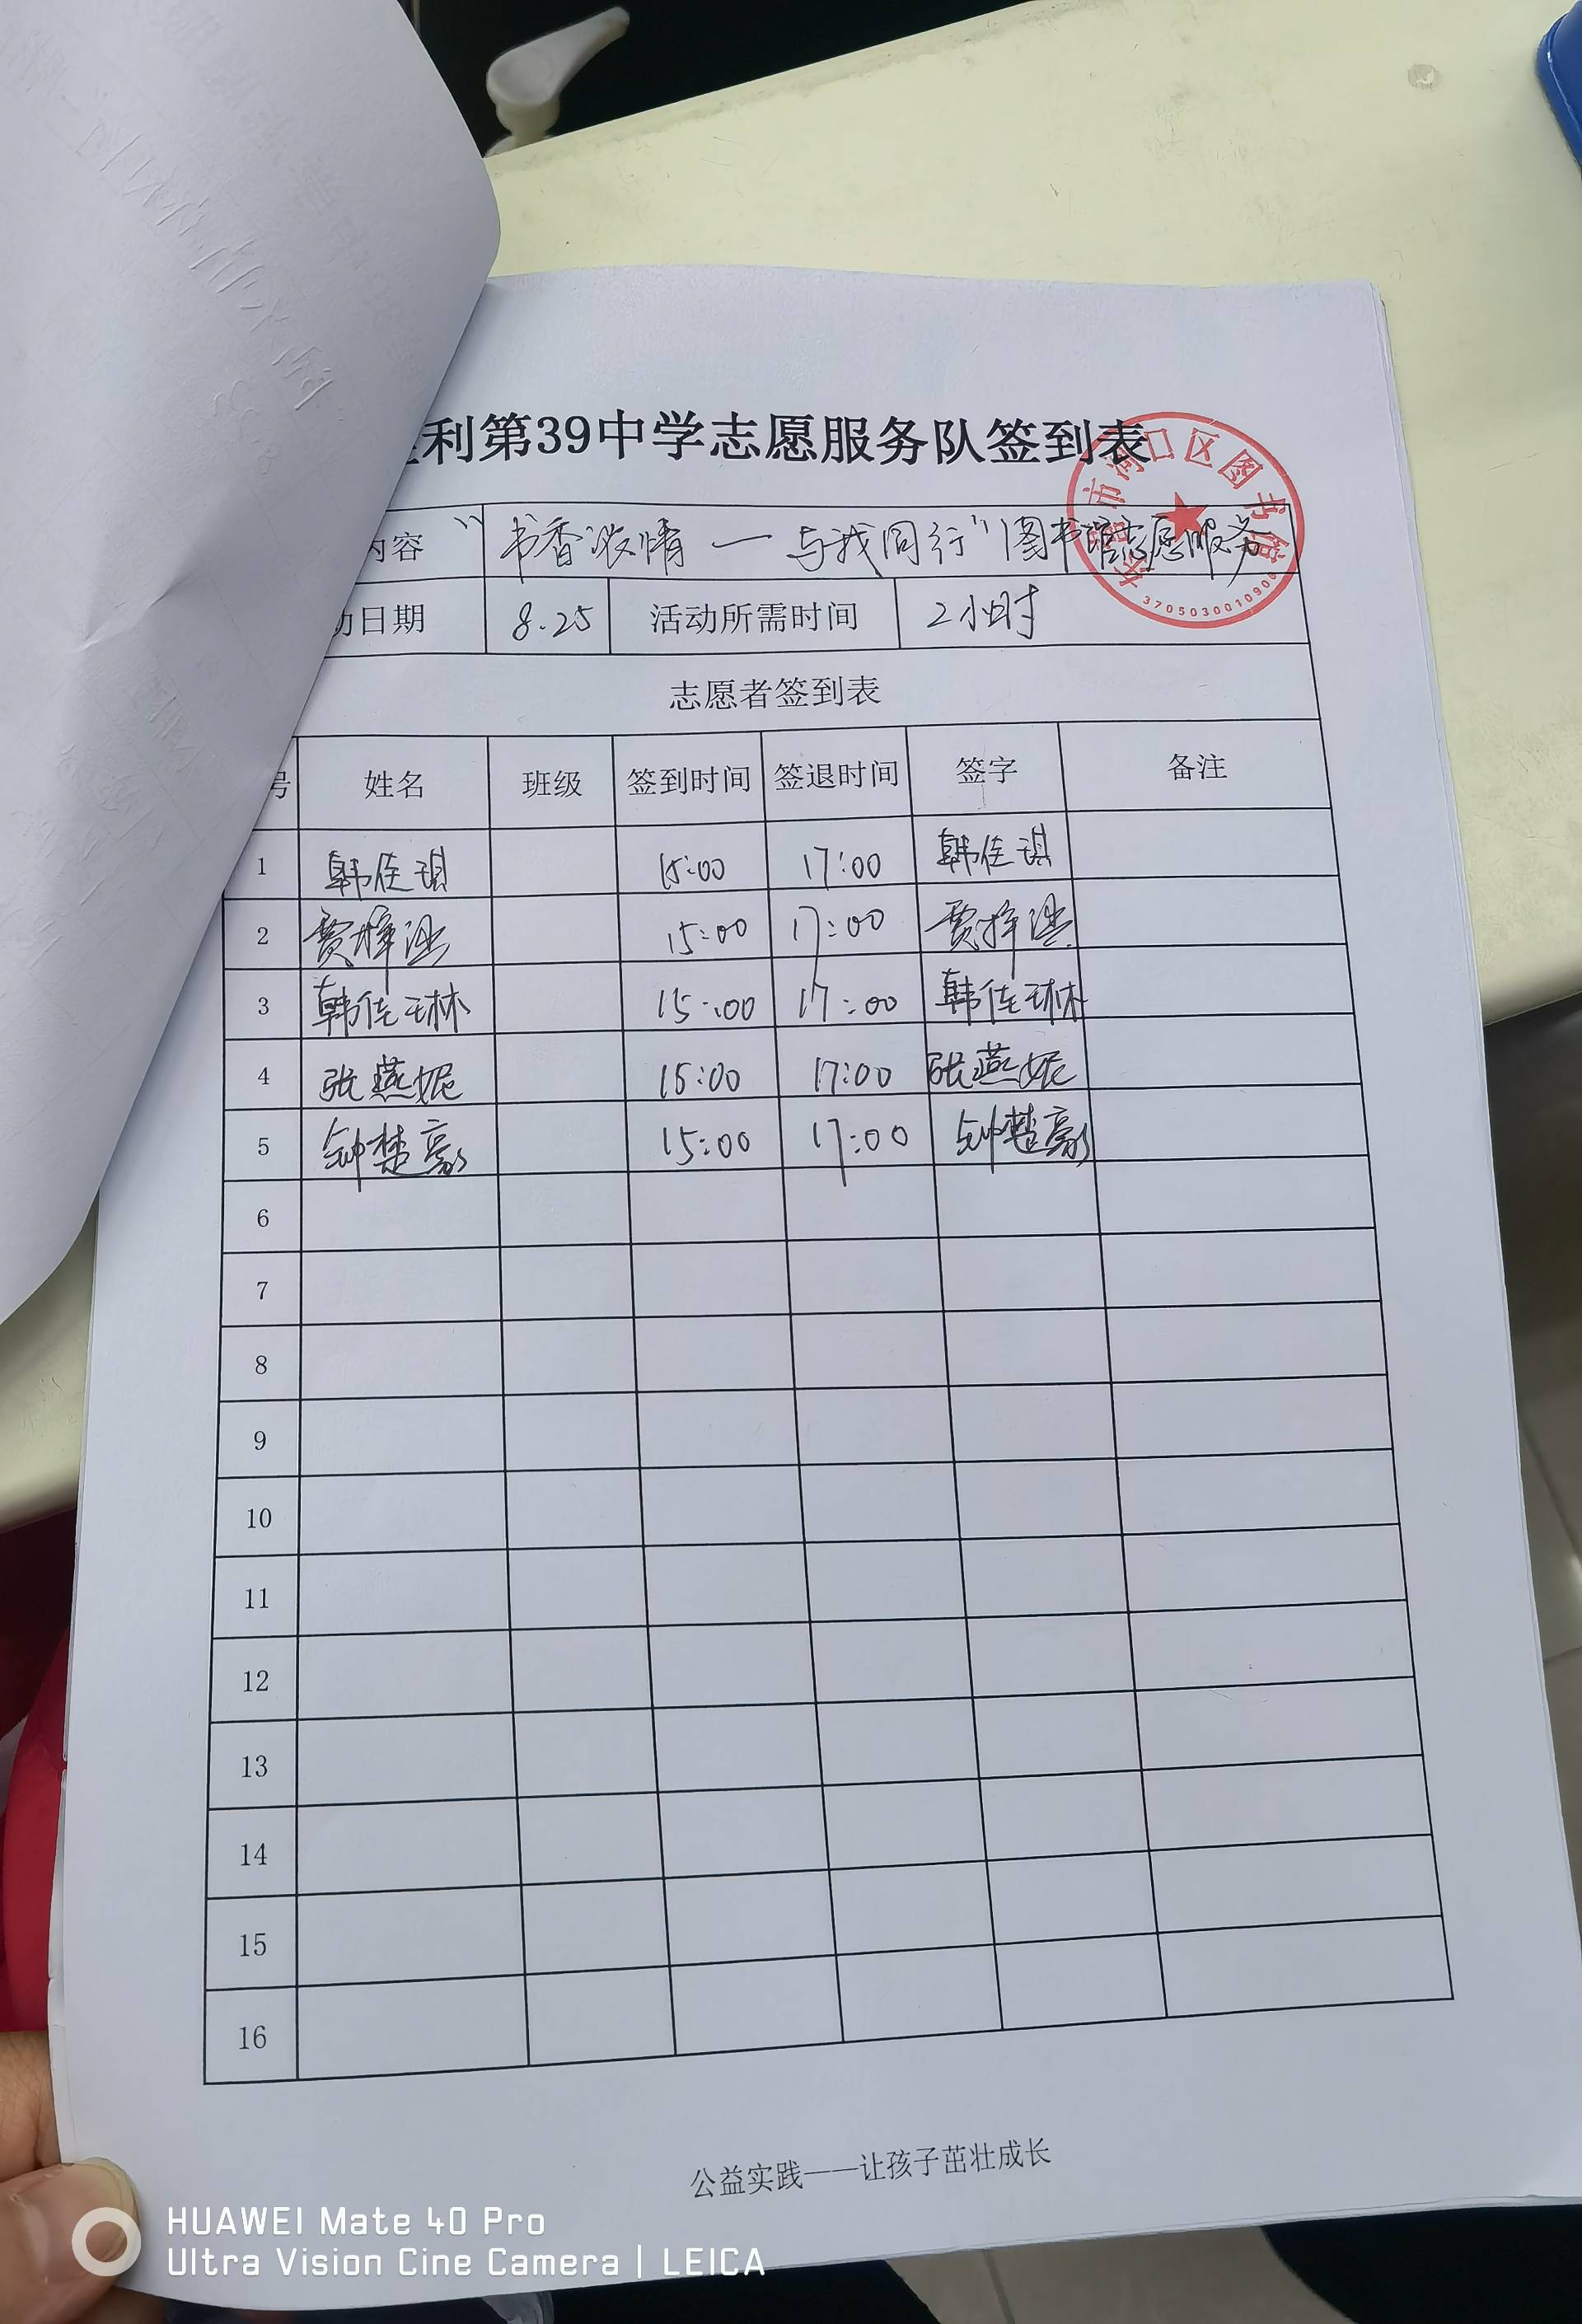 利第39中学志愿服务队签到表
内容 “书香浓情 — 与我同行”图书馆志愿服务
动日期 8.25 活动所需时间 2小时
东营市河口区图书馆
3705030010900
志愿者签到表
号 姓名 班级 签到时间 签退时间 签字 备注
1 韩佳琪 15:00 17:00 韩佳琪
2 贾梓 15:00 17:00 贾梓
3 韩佳琳 15:00 17:00 韩佳琳
4 张燕妮 15:00 17:00 张燕妮
5 钟楚豪 15:00 17:00 钟楚豪
6
7
8
9
10
11
12
13
14
15
16
公益实践——让孩子茁壮成长
HUAWEI Mate 40 Pro
Ultra Vision Cine Camera | LEICA